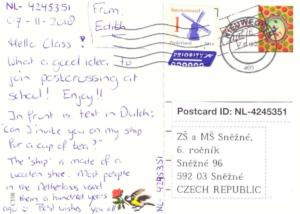 NL-4245351
07-11-2018
From:
Edith
Hello Class!
What a good idea, to
join postcrossing at
school! Enjoy!!
In front is text in Dutch:
"Can I invite you on my ship
for a cup of tea?"
The "ship" is made of a
wooden shoe. Most people
in the Netherlands used
them a hundred years
ago. Best wishes you all
NL-4245351
1
Nederland
PRIORITY
NIEUWEGEIN
Postcard ID: NL-4245351
ZŠ a MŠ Sněžné,
6. ročník
Sněžné 96
592 03 Sněžné
CZECH REPUBLIC